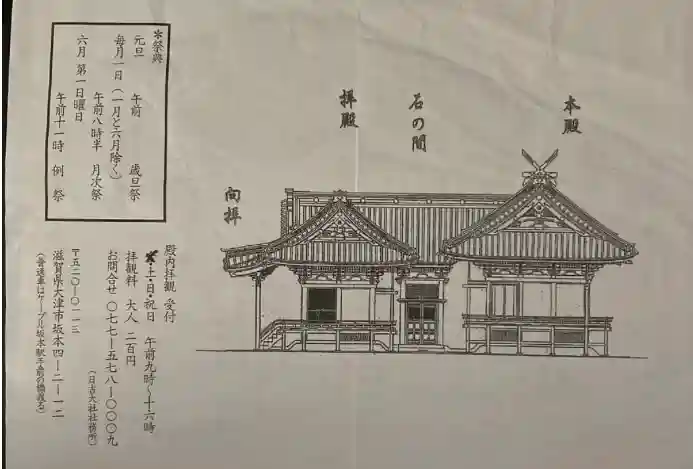 本殿
石の間
拝殿
向拝
＊祭典
元旦 午前 歳旦祭
毎月一日（一月と六月除く）
午前八時半 月次祭
六月 第一日曜日
午前十一時 例祭
殿内拝観 受付
土・日・祝日 午前九時〜十六時
拝観料 大人 二百円
お問合せ 〇七七ー五七八ー〇〇〇九
（日吉大社社務所）
〒五二〇ー〇一一三
滋賀県大津市坂本四ー二ー一二